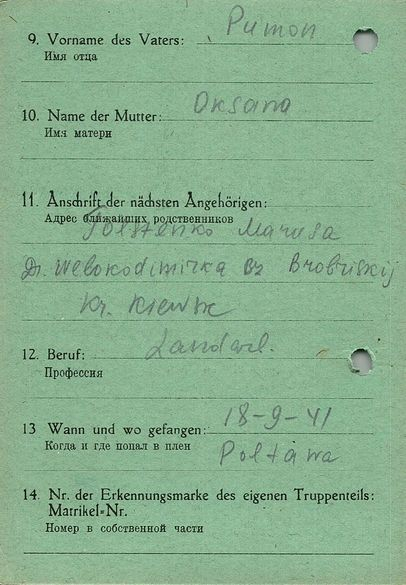 9. Vorname des Vaters: Pumon
Имя отца
10. Name der Mutter: Oksana
Имя матери
11. Anschrift der nächsten Angehörigen:
Адрес ближайших родственников
Marusa
D. Welokodimirka Bz
Kr.
12. Beruf: Landarb.
Профессия
13 Wann und wo gefangen: 18-9-41
Когда и где попал в плен Poltawa
14. Nr. der Erkennungsmarke des eigenen Truppenteils:
Matrikel=Nr.
Номер в собственной части